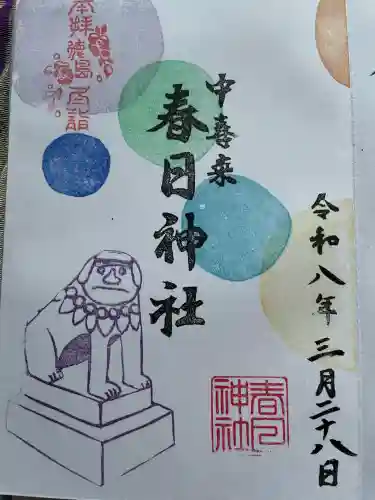 奉拝
徳島
百詣
中喜来
春日神社
令和八年三月二十八日
春日
神社